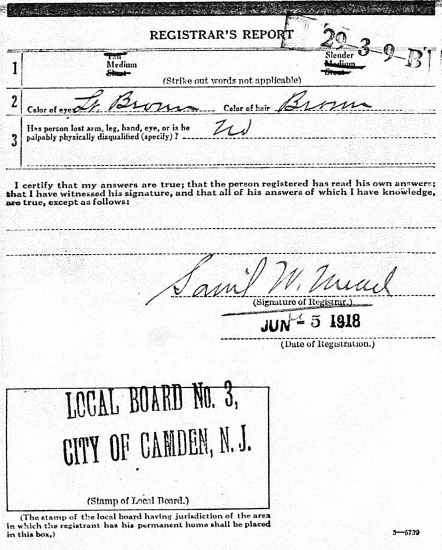 REGISTRAR'S REPORT
29 3 9 B
1 Tall Slender
Medium Medium
Stout Stout
(Strike out words not applicable)
2 Color of eyes Lt. Brown Color of hair Brown
3 Has person lost arm, leg, hand, eye, or is he
palpably physically disqualified (specify)? No
I certify that my answers are true; that the person registered has read his own answers;
that I have witnessed his signature, and that all of his answers of which I have knowledge,
are true, except as follows:
W.
(Signature of Registrar.)
JUN - 5 1918
(Date of Registration.)
LOCAL BOARD No. 3,
CITY OF CAMDEN, N. J.
(Stamp of Local Board.)
(The stamp of the local board having jurisdiction of the area
in which the registrant has his permanent home shall be placed
in this box.)
3—6739